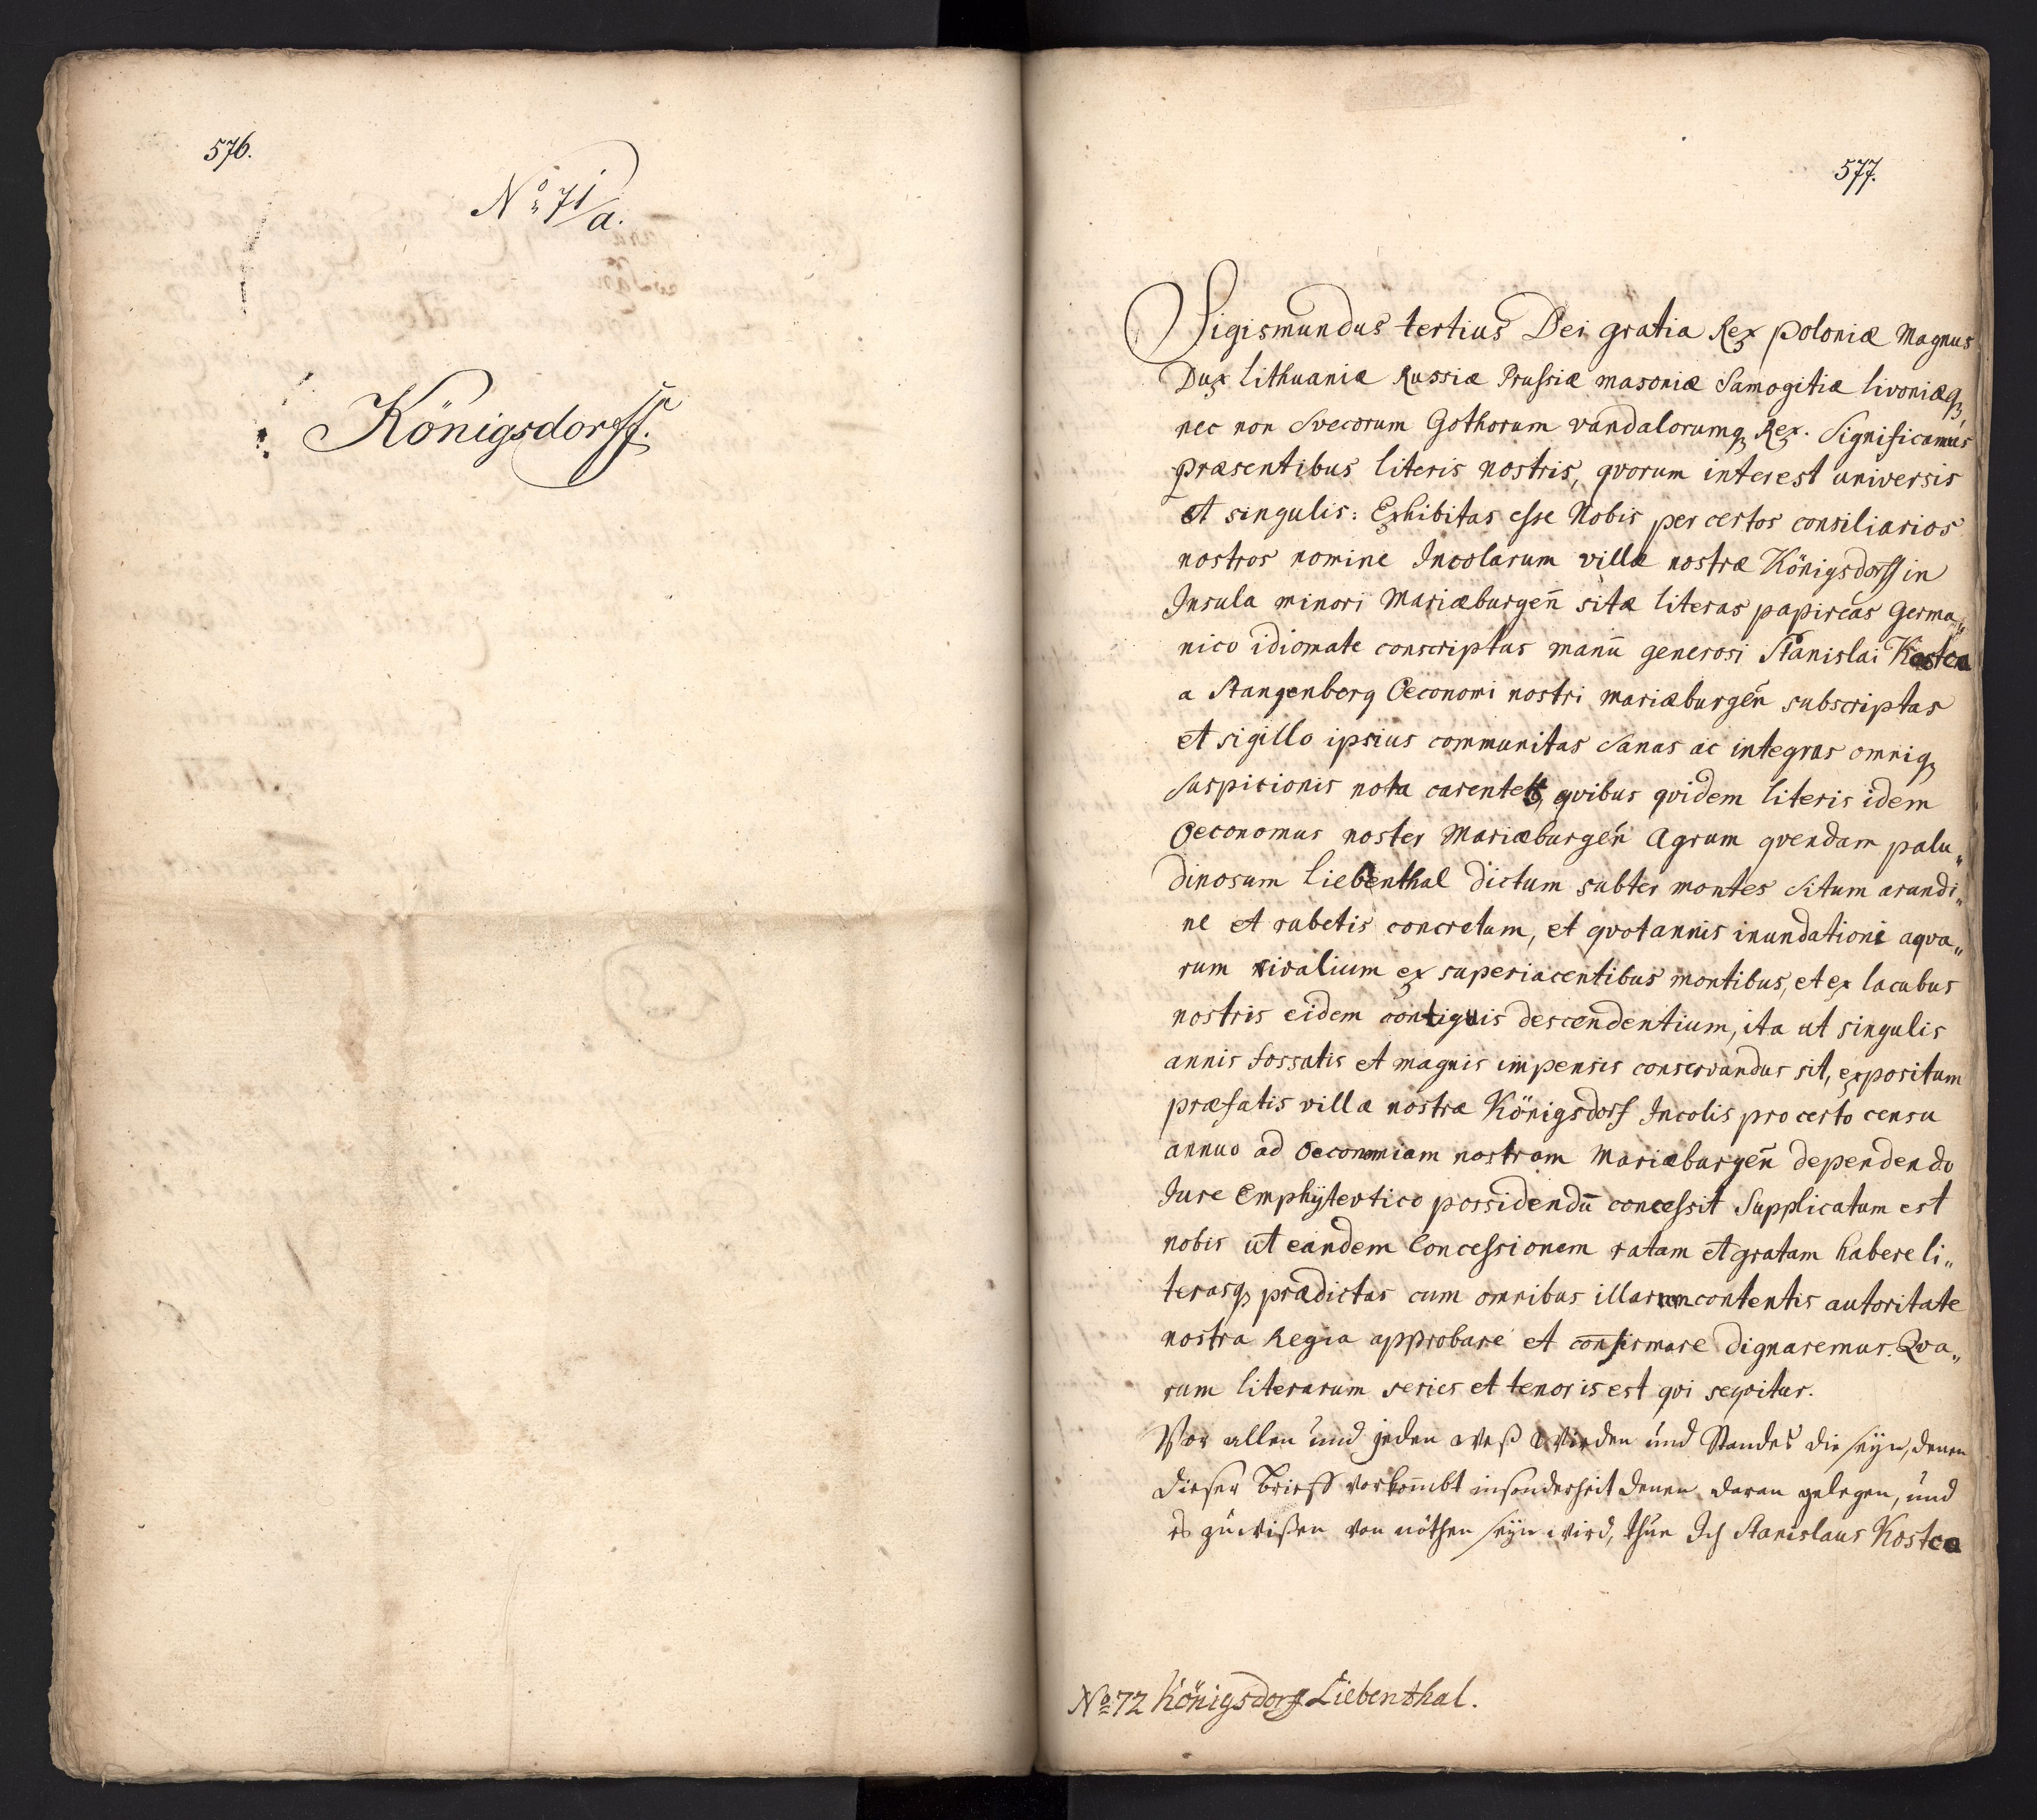 576.
No 71/a.
Königsdorff.
577.
Sigismundus tertius Dei gratia Rex poloniæ Magnus
Dux Lithuaniæ Russiæ Prussiæ masoniæ Samogitiæ livoniæq
nec non Svecorum Gothorum vandalorumq Rex. Significamus
præsentibus literis nostris, qvorum interest universis
et singulis: Exhibitas esse Nobis per certos consiliarios
nostros nomine Incolarum villæ nostræ Königsdorff in
Insula minori Mariæburgen̄ sitæ literas papireas Germa„
nico idiomate conscriptas manū generosi Stanislai Kostca
a Stangenberg Oeconomi nostri mariæburgen̄ subscriptas
et sigillo ipsius communitas Sanas ac integras omniq
suspicionis nota carentes, qvibus qvidem literis idem
Oeconomus noster Mariæburgen̄ Agrum qvendam palu„
dinosum Liebenthal dictum subter montes Situm arundi„
ne et rubetis concretum, et qvotannis inundationi aqva„
rum rivalium ex superiacentibus montibus, et ex lacubus
nostris eidem contiguis descendentium, ita ut singulis
annis fossatis et magnis impensis conservandus sit, expositum
præfatis villæ nostræ Königsdorf Incolis pro certo censu
annuo ad Oeconomiam nostram Mariæburgen̄ dependendo
Jure Emphÿtevtico possidendū concessit Supplicatum est
nobis ut eandem Concessionem ratam et gratam habere li„
terasq prædictas cum omnibus illarum contentis autoritate
nostra Regia approbare et confirmare dignaremur. Qva„
rum literarum series et tenor is est qvi seqvitur.
Vor allen und jeden weß Wirden und Standes die seÿn, denen
dieser Brieff vorkom̄bt insonderheit denen daran gelegen, und
es zuwißen von nöthen seÿn wird, thue Ich Stanislaus Kostca
No 72 Königsdorff Liebenthal.